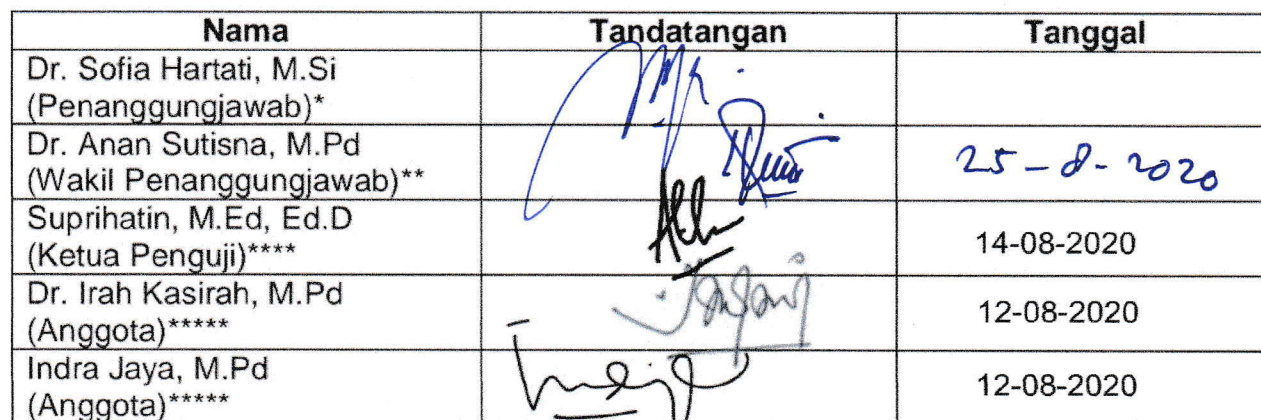 Nama Tandatangan Tanggal
Dr. Sofia Hartati, M.Si
(Penanggungjawab)*
Dr. Anan Sutisna, M.Pd
(Wakil Penanggungjawab)** 25-8-2020
Suprihatin, M.Ed, Ed.D
(Ketua Penguji)**** 14-08-2020
Dr. Irah Kasirah, M.Pd
(Anggota)***** 12-08-2020
Indra Jaya, M.Pd
(Anggota)***** 12-08-2020